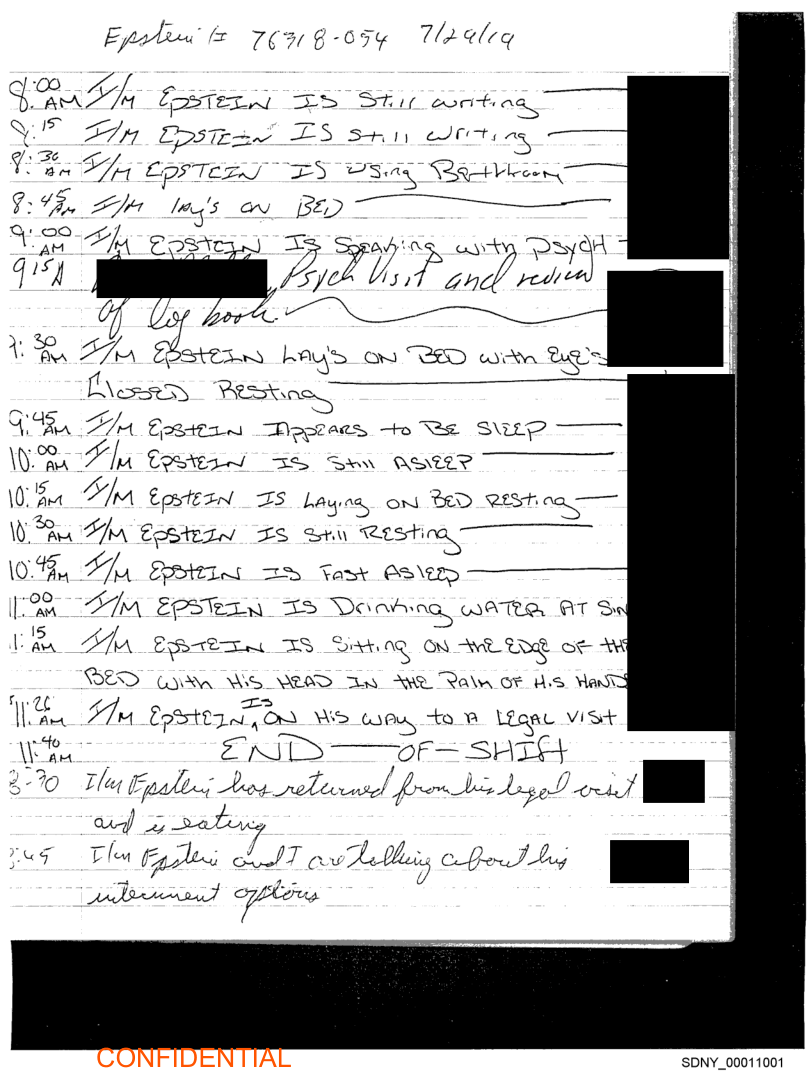 Epstein # 76318-054 7/29/19
8:00 AM I/M EPSTEIN IS Still writing
8:15 I/M EPSTEIN IS still writing
8:30 AM I/M EPSTEIN IS using Bathroom
8:45 AM I/M lay's on BED
9:00 AM I/M EPSTEIN IS SPEAKing with PSYCH
915A Psych Visit and review
of log book.
9:30 AM I/M EPSTEIN LAY'S ON BED with EyE's
CLOSED RESting
9:45 AM I/M EPSTEIN APPEARS to BE SlEEP
10:00 AM I/M EPSTEIN IS Still ASlEEP
10:15 AM I/M EPSTEIN IS LAying ON BED RESting
10:30 AM I/M EPSTEIN IS Still RESting
10:45 AM I/M EPSTEIN IS FAST ASlEEP
11:00 AM I/M EPSTEIN IS Drinking WATER AT SIN
:15 AM I/M EPSTEIN IS Sitting ON thE EDgE OF thE
BED with His HEAD IN thE PAlm OF His HANDS
11:26 AM I/M EPSTEIN, IS ON His WAY to A LEGAL VISIT
11:40 AM END - OF - SHIFT
:30 I/m Epstein has returned from his legal visit
and is eating
:45 I/m Epstein and I are talking about his
internment options
CONFIDENTIAL
SDNY_00011001